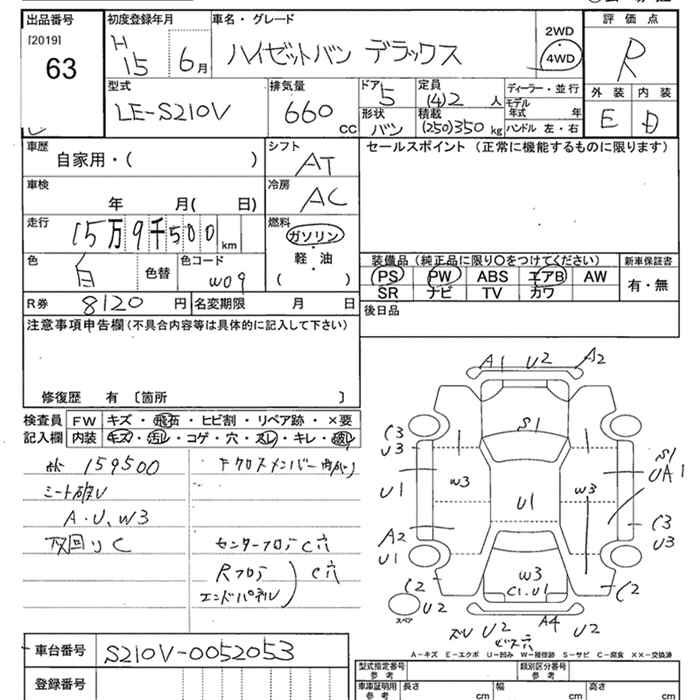 出品番号
[2019]
63
初度登録年月
H
15 6月
車名・グレード
ハイゼットバン デラックス
2WD
4WD
評価点
R
外装 内装
E D
型式
LE-S210V
排気量
660 cc
ドア
5
形状
バン
定員
(4)2 人
積載
(250)350 kg
ディーラー・並行
モデル
年式 年
ハンドル 左・右
車歴
自家用・( )
シフト
AT
セールスポイント (正常に機能するものに限ります)
車検
年 月( 日)
冷房
AC
走行
15万9千500 km
燃料
ガソリン
軽・油
( )
色
白
色替
色コード
W09
装備品(純正品に限り○をつけてください)
新車保証書
PS PW ABS エアB AW
SR ナビ TV カワ
有・無
R券 8120 円
名変期限 月 日
後日品
注意事項申告欄(不具合内容等は具体的に記入して下さい)
修復歴 有 [箇所 ]
検査員
記入欄
FW キズ・飛石・ヒビ割・リペア跡・×要
内装 キズ・汚レ・コゲ・穴・スレ・キレ・破レ
159500
シート破レ
A・U、W3
下回りC
下クロスメンバー曲がり
センターフロアC穴
Rフロア
エンドパネル
C穴
A1 U2 A2
S1
C3
U3
S1
UA1
U1
W3
U1
W3
C3
U3
A2
U1
W3
C1、U1
C2
C2
スペア
U2
U2
A4
U2
ビス穴
A-キズ E-エクボ U-凹み W-補修跡 S-サビ C-腐食 ××-交換済
車台番号
S210V-0052053
登録番号
型式指定番号
参考
類別区分番号
参考
車庫証明用
参考
長さ cm
幅 cm
高さ cm